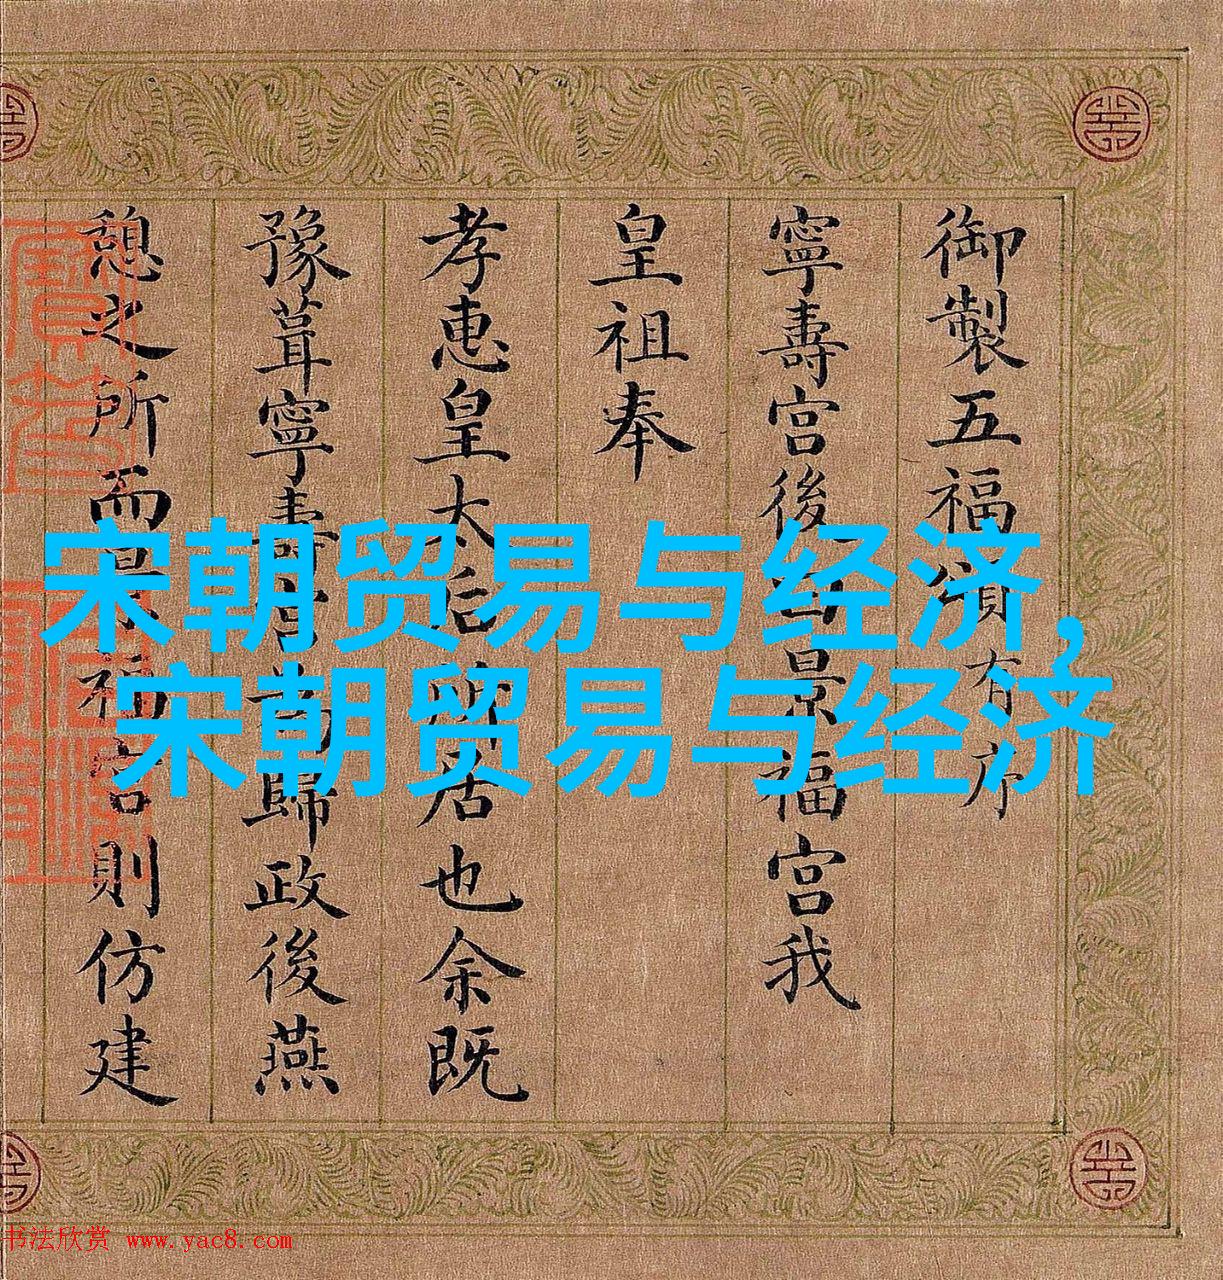 御製五福頌有序
寧壽宮後景福宮我
皇祖奉
孝惠皇太后所居也余既
豫葺寧壽宮為歸政後燕
憩之所而景福宮則仿建
宋朝贸易与经济,
宋朝贸易与经济
书法欣赏 www.yac8.com